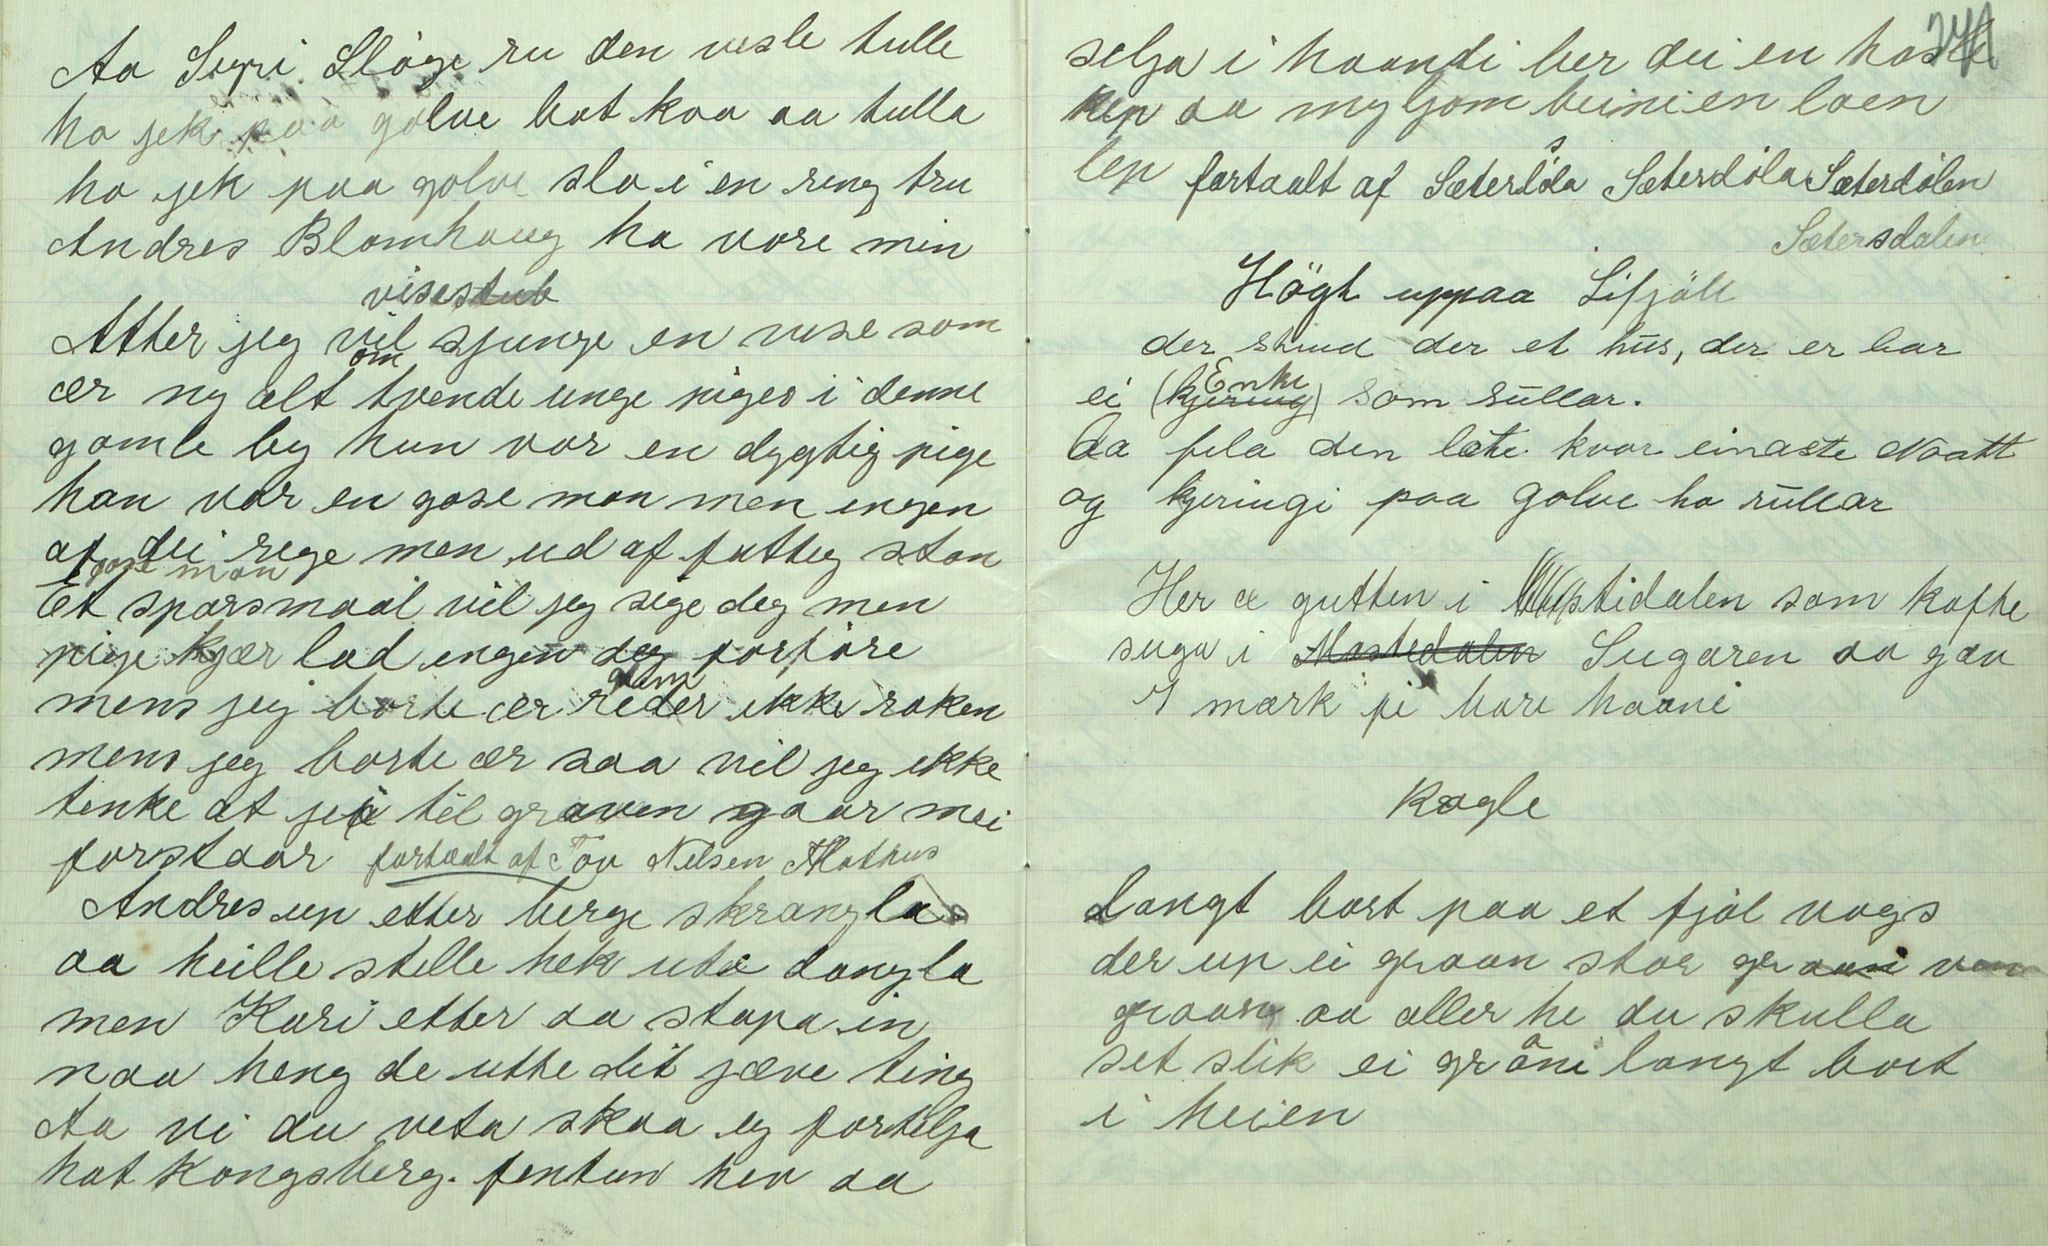 Aa Sigri Slöge ru den vesle tulle
ho jek paa golve bat kaa aa tulla
ho jek paa golve slo i en ring tru
Andres Blomhaug ha vore min
visestub
Atter jeg vil sjunge en vise som
ær ny alt om tvende unge piger i denne
gamle by hun var en dygtig pige
han var en gose man men ingen
af dei rege men ud af fattig stan
gose man
Et sporsmaal vil jeg sige deg men
pige kjær lad ingen deg forföre
mens jeg borte ær reder ikke roken
mens jeg borte ær saa vil jeg ikke
tenke at jeg til graven gaar mei
forstaar fortaalt af Tov Nelsen Mathus
Andres up etter berge skrangla
aa heille stelle hek utæ dangla
men Kari etter aa stapa in
naa heng de utte dit jæve ting
Aa vi du veta skaa eg fortelja
hat Kongsberg. fentun hev aa
241
selja i haandi ber dei en haste
kep aa myljom beini en loen
lep fortaalt af Sæterdöla Sæterdöla Sæterdölen
Sætersdalen
Högt uppaa Lifjöll
der stuud der et hus, der er bar
ei (kjering) Enke som rullar.
Aa fela den læte kvar einaste Naatt
og kjeringi paa golve ho rullar
Her æ gutten i Uptidalen som kafte
suga i Mostedalen Sugaren aa gav
7 mark fe bare haane
Kogle
Langt bort paa et fjöl vogs
der up ei graan stor graani van
graan aa aller he du skulla
set slik ei gråni langt bort
i heien